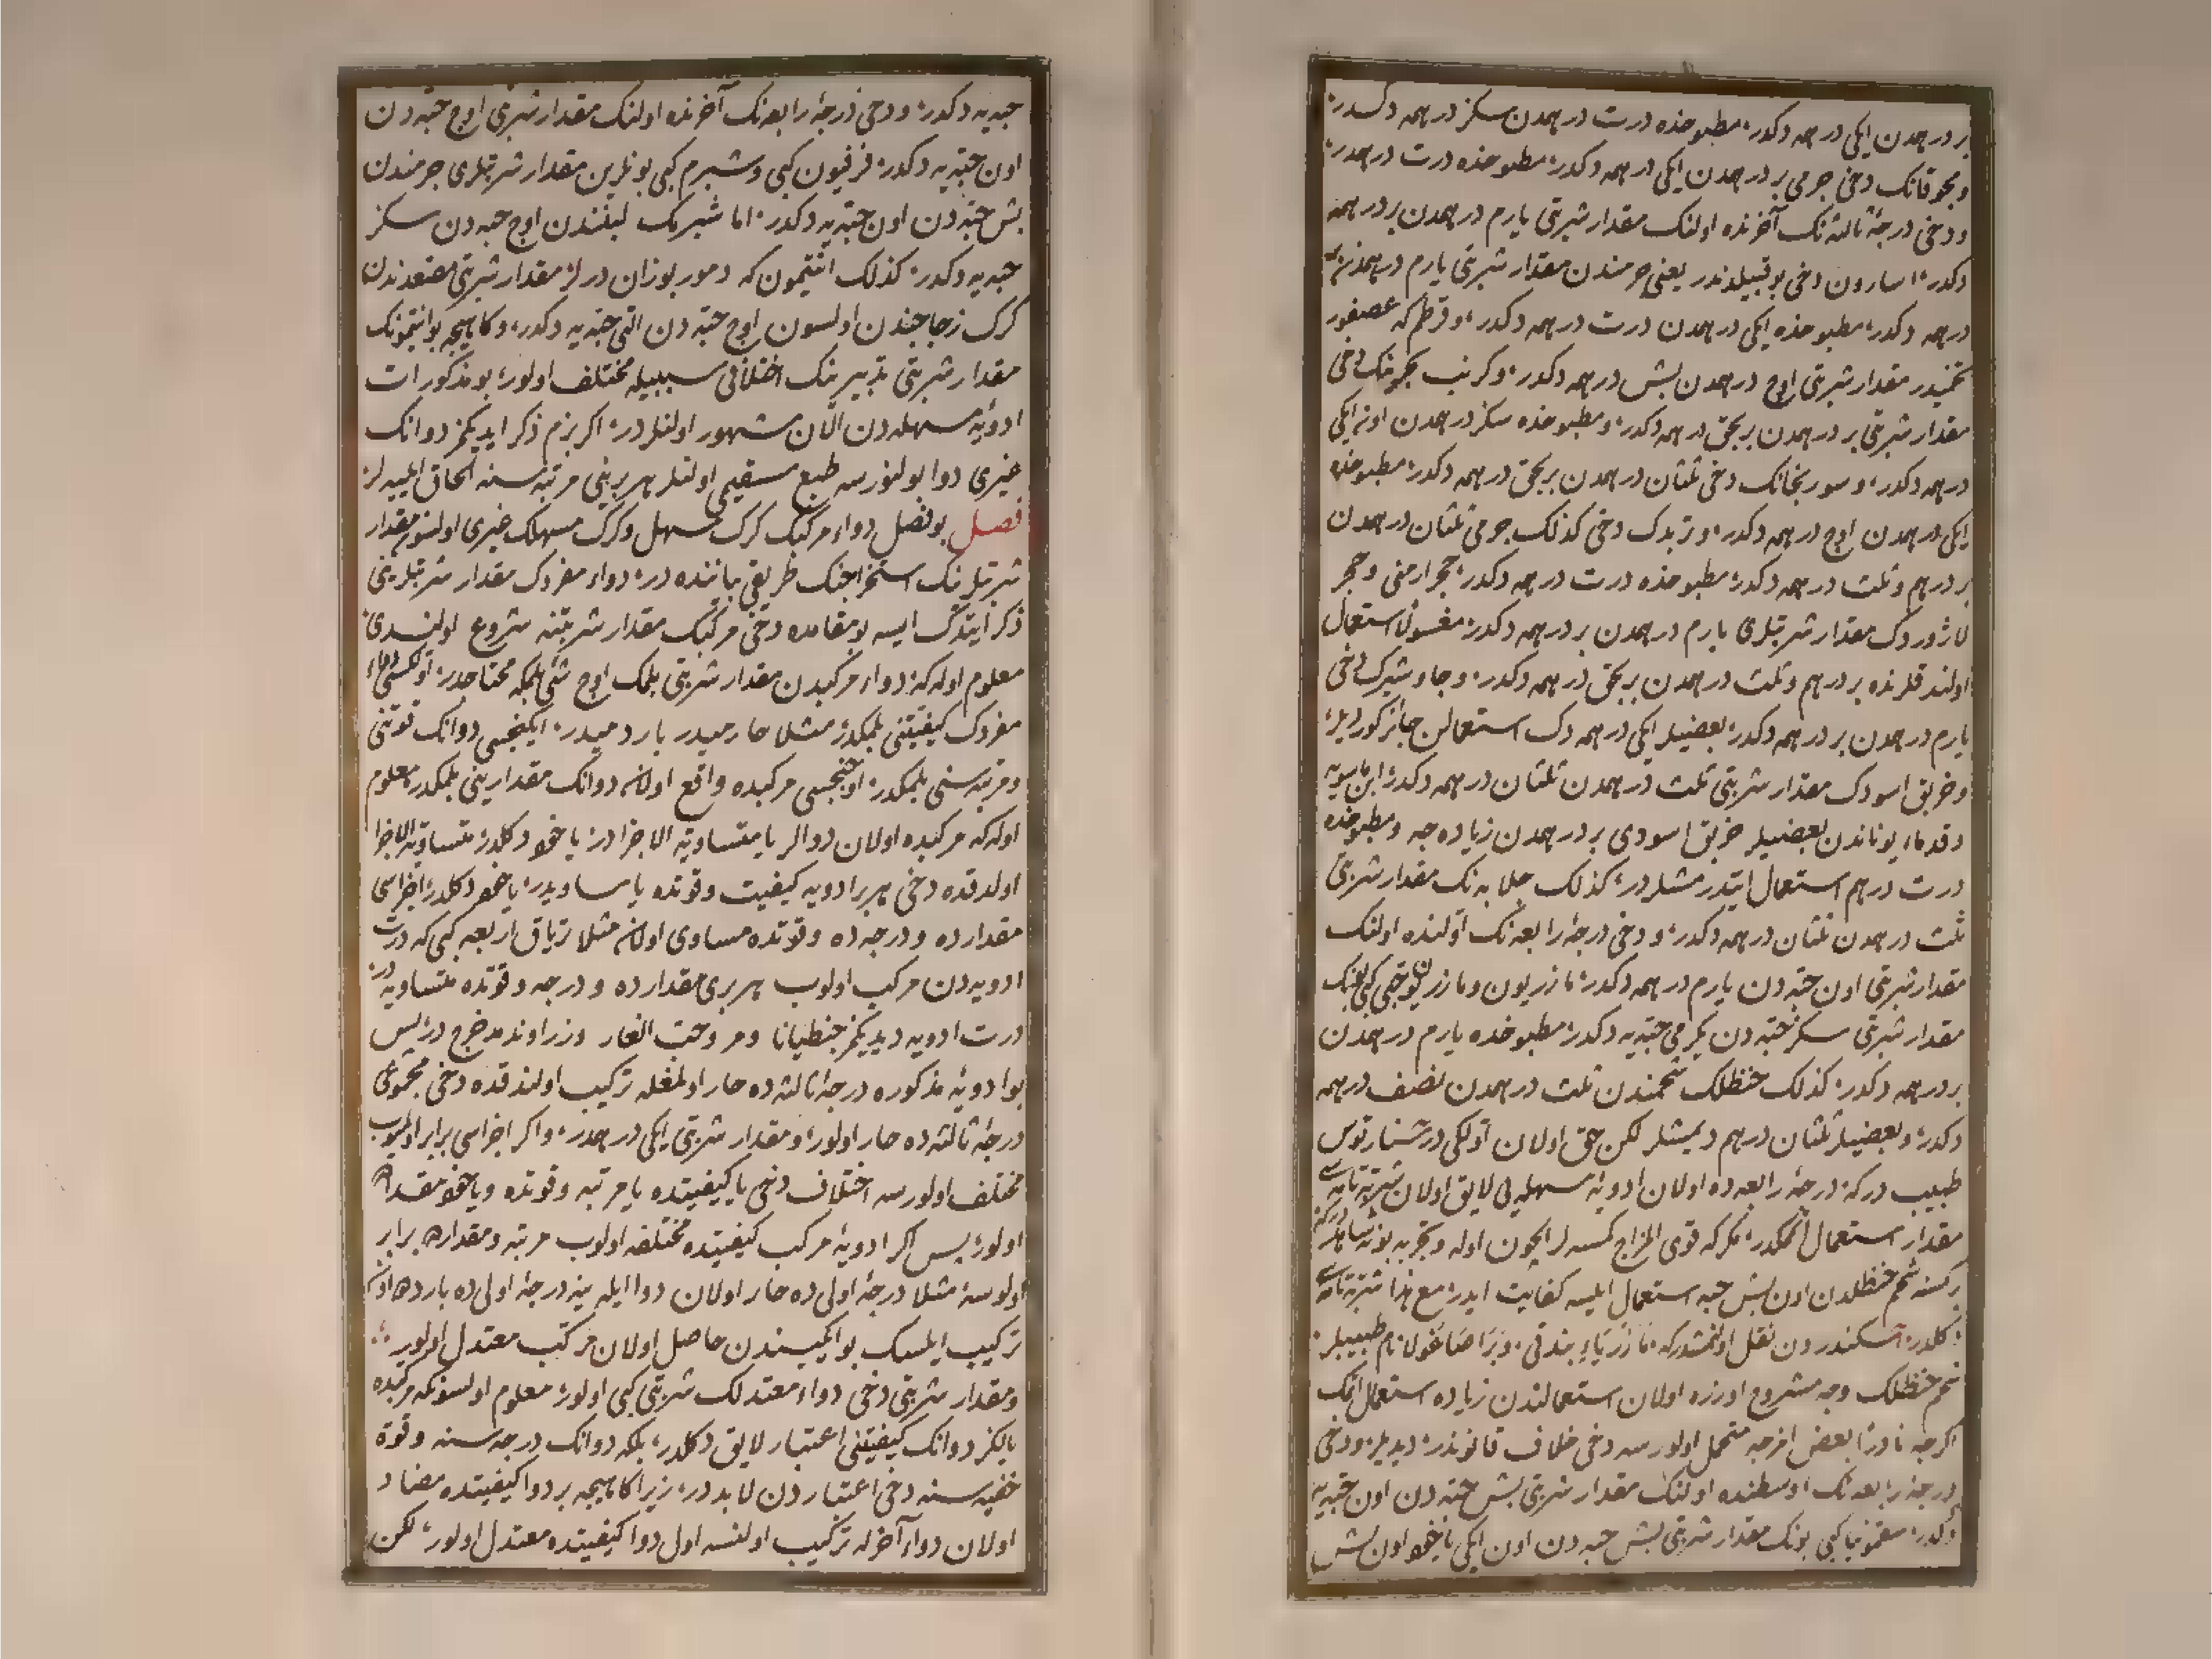 بر درهمدن ایکی درهمه دکدر، مطبوخنده درت درهمدن سکز درهمه دکدر،
دخی جرمی بر درهمدن ایکی درهمه دکدر، مطبوخنده درت درهمدر،
ودخی درجۀ ثالثه‌نک آخرنده اولنک مقدار شربتی یارم درهمدن بر درهمه
دکدر، اسارون دخی بو قبیلدندر یعنی جرمندن مقدار شربتی یارم درهمدن بر
درهمه دکدر، مطبوخنده ایکی درهمدن درت درهمه دکدر، وقرطم که عصفور
تخمیدر مقدار شربتی اوج درهمدن بش درهمه دکدر، وکرنب دخی
مقدار شربتی بر درهمدن بر بحق درهمه دکدر، ومطبوخنده سکز درهمدن اون ایکی
درهمه دکدر، وسورنجانک دخی ثلثان درهمدن بر بحق درهمه دکدر، مطبوخنده
ایکی درهمدن اوج درهمه دکدر، وتربدک دخی کذلک جرمی ثلثان درهمدن
بر درهم وثلث درهمه دکدر، مطبوخنده درت درهمه دکدر، حجر ارمنی وحجر
لاژوردک مقدار شربتلری یارم درهمدن بر درهمه دکدر، مغسولا استعمال
اولندقلرنده بر درهم وثلث درهمدن بر بحق درهمه دکدر، وجاوشیرک دخی
یارم درهمدن بر درهمه دکدر، بعضیلر ایکی درهمه دک استعمالن جائز کوردیلر،
وخربق اسودک مقدار شربتی ثلث درهمدن ثلثان درهمه دکدر، ابن ماسویه
وقدماء یوناندن بعضیلر خربق اسودی بر درهمدن زیاده‌جه ومطبوخنده
درت درهم استعمال ایتدرمشلردر، کذلک جلابه‌نک مقدار شربتی
ثلث درهمدن ثلثان درهمه دکدر، ودخی درجۀ رابعه‌نک اولنده اولنک
مقدار شربتی اون حبه‌دن یارم درهمه دکدر، مازریون ومازریون حبی کبی بونک
مقدار شربتی سکز حبه‌دن یکرمی حبه‌یه دکدر، مطبوخنده یارم درهمدن
بر درهمه دکدر، کذلک حنظلک شحمندن ثلث درهمدن نصف درهمه
دکدر، وبعضیلر ثلثان درهم دیمشلر لکن حق اولان اولکی در
طبیب درکه درجۀ رابعه‌ده اولان ادویۀ مسهله‌یی لایق اولان شربة تامه‌سی
مقدار استعمال ایتمکدر، مکرکه قوی المزاج کمسه‌لر ایچون اوله وتجربه بونه شاهددر
بر کمسنه شحم حنظلدن اون بش حبه استعمال ایلسه کفایت ایدر، مع هذا شربة تامه‌سی
دکلدر، اسکندردن نقل اولنمشدرکه نام طبیبلر
شحم حنظلک وجه مشروح اوزره اولان استعمالندن زیاده استعمال ایتمک
اکرچه نادرا بعض امزجه متحمل اولورسه دخی خلاف قانوندر، دیدیلر، ودخی
درجۀ رابعه‌نک اوسطنده اولنک مقدار شربتی بش حبه‌دن اون حبه‌یه
دکدر، سقمونیا کبی بونک مقدار شربتی بش حبه‌دن اون ایکی یاخود اون بش
حبه‌یه دکدر، ودخی درجۀ رابعه‌نک آخرنده اولنک مقدار شربتی اوج حبه‌دن
اون حبه‌یه دکدر، فرفیون کبی وشبرم کبی بونلرین مقدار شربتلری جرمندن
بش حبه‌دن اون حبه‌یه دکدر، اما شبرمک لبنندن اوج حبه‌دن سکز
حبه‌یه دکدر، کذلک انتیمون که دمور بوزان درلر مقدار شربتی مصعدندن
کرک زجاجیندن اولسون اوج حبه‌دن التی حبه‌یه دکدر، وکاهیجه بو انتیمونک
مقدار شربتی تدبیرینک اختلافی سببیله مختلف اولور، بو مذکورات
ادویۀ مسهله‌دن الآن مشهور اولنلردر، اکر بزم ذکر ایدیکمز دوانک
غیری دوا بولنورسه طبع مستقیمی اولنلر هر برینی مرتبه‌سنه الحاق ایلیه‌لر،
فصل بو فصل دواء مرکبک کرک مسهل وکرک مسهلک غیری اولسون مقدار
شربتلرنک استخراجنک طریقی بیاننده در، دواء مفردک مقدار شربتلرینی
ذکر ایتدک ایسه بو مقامده دخی مرکبک مقدار شربتنه شروع اولندی،
معلوم اوله که دواء مرکبدن مقدار شربتی بلمک اوج شئی بلمکه محتاجدر، اولکسی دواء
مفردک کیفیتنی بلمکدر، مثلا حارمیدر بارد میدر، ایکنجیسی دوانک قوتنی
ومرتبه‌سنی بلمکدر، اوچنجیسی مرکبده واقع اولان دوانک مقدارینی بلمکدر، معلوم
اوله که مرکبده اولان دوالر یا متساویة الاجزا در، یاخود دکلدر، متساویة الاجزا
اولدقده دخی هر بر ادویه کیفیت وقوتده یا مساویدر، یاخود دکلدر، اجزاسی
مقدارده ودرجه‌ده وقوتده مساوی اولان مثلا تریاق اربعه کبی که درت
ادویه‌دن مرکب اولوب هر بری مقدارده ودرجه وقوتده متساویه در،
درت ادویه دیدیکمز جنطیانا ومر وحب الغار وزراوند مدحرج در، پس
بو ادویۀ مذکوره درجۀ ثالثه‌ده حار اولمغله ترکیب اولندقده دخی مجموعی
درجۀ ثالثه‌ده حار اولور، ومقدار شربتی ایکی درهمدر، واکر اجزاسی برابر اولیوب
مختلف اولورسه اختلاف دخی یا کیفیتده یا مرتبه وقوتده ویاخود مقدارده
اولور، پس اکر ادویۀ مرکب کیفیتده مختلفه اولوب مرتبه ومقدارده برابر
اولورسه، مثلا درجۀ اولی‌ده حار اولان دوا ایله ینه درجۀ اولی‌ده بارد دوا
ترکیب ایلسک بو ایکیسندن حاصل اولان مرکب معتدل اولور
ومقدار شربتی دخی دواء معتدلک شربتی کبی اولور، معلوم اولسونکه مرکبده
یالکز دوانک کیفیتنی اعتبار لایق دکلدر، بلکه دوانک درجه‌سنه وقوة
خفیه‌سنه دخی اعتباردن لابد در، زیرا کاهیجه بر دوا کیفیتده مضاد
اولان دواء آخرله ترکیب اولنسه اول دوا کیفیتده معتدل اولور، لکن